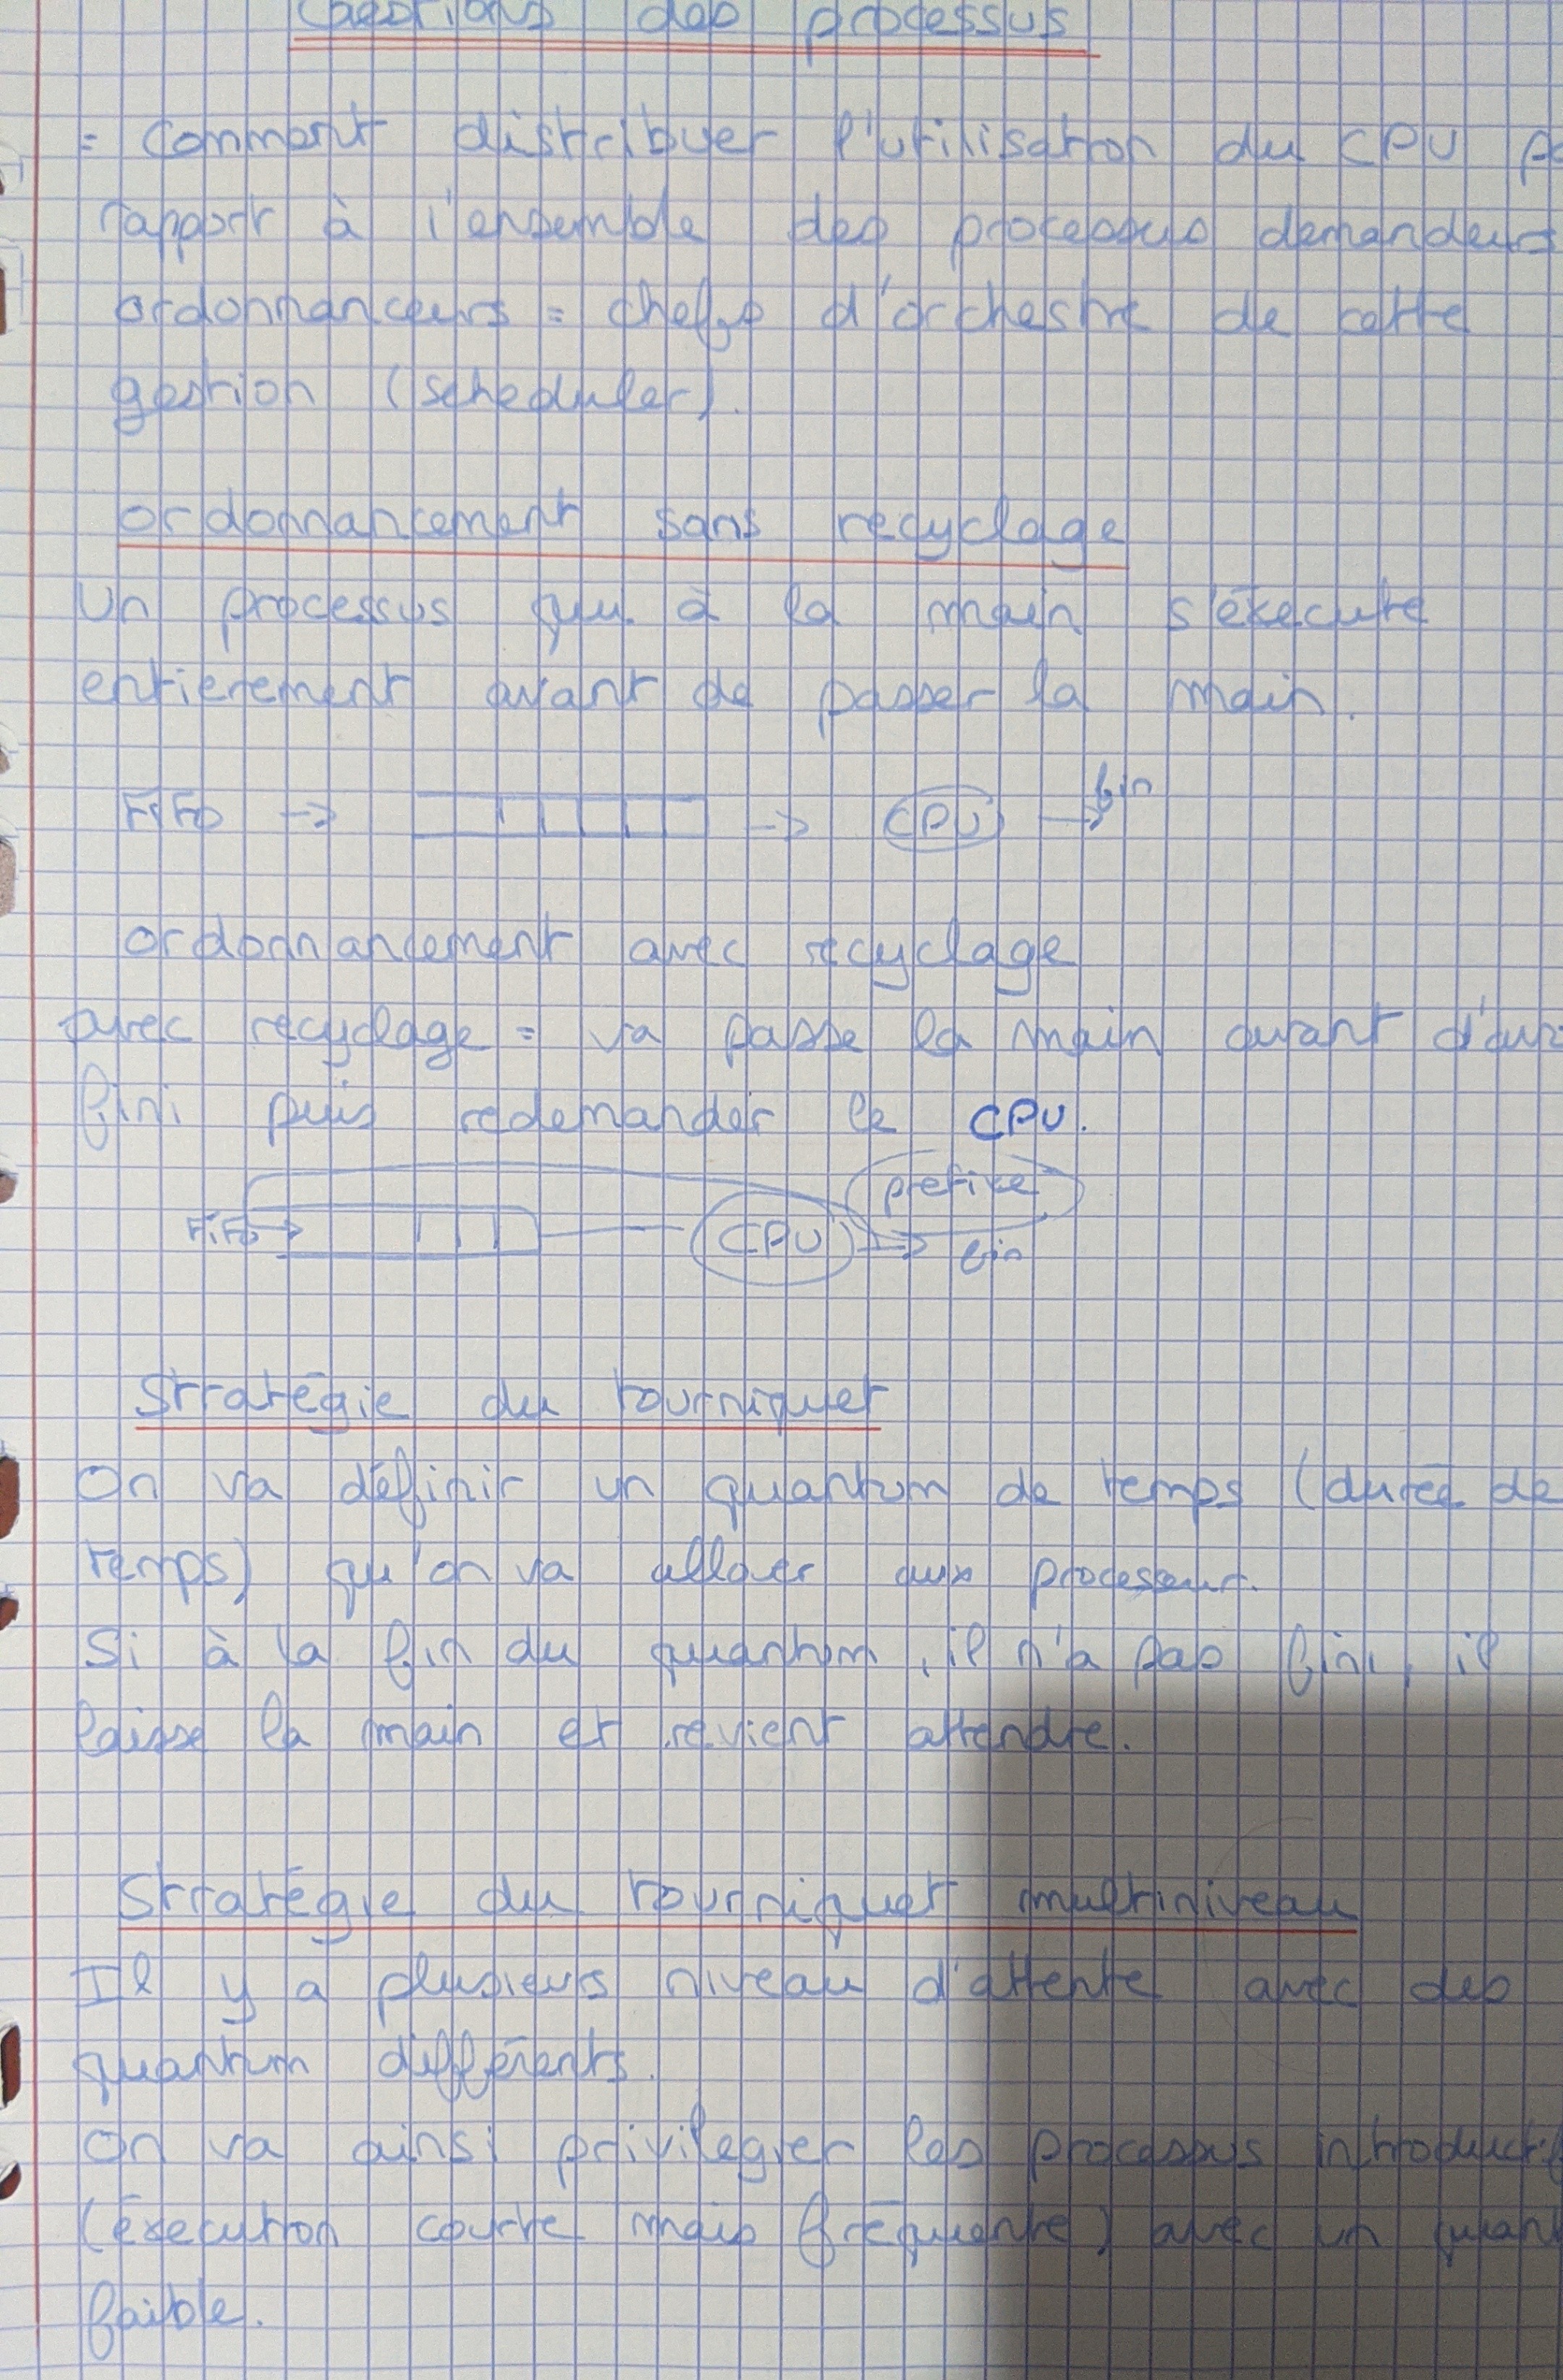 Gestions des processus
= Comment distribuer l'utilisation du CPU
rapport à l'ensemble des processus demandeurs
ordonnanceurs = chefs d'orchestre de cette
gestion (scheduler).
ordonnancement sans recyclage
Un processus qui à la main s'éxecute
entierement avant de passer la main.
FiFo -> -> CPU -> fin
ordonnancement avec recyclage
avec recyclage = va passe la main avant
fini puis redemander le CPU.
FiFo -> CPU -> fin
Stratégie du tourniquet
On va définir un quantum de temps (durée de
temps) qu'on va allouer aux processeur.
Si à la fin du quantum, il n'a pas fini, il
laisse la main et revient attendre.
Stratégie du tourniquet multiniveau
Il y a plusieurs niveau d'attente avec des
quantum différents.
On va ainsi privilegier les processus
(éxecution courte mais fréquente) avec un
faible.